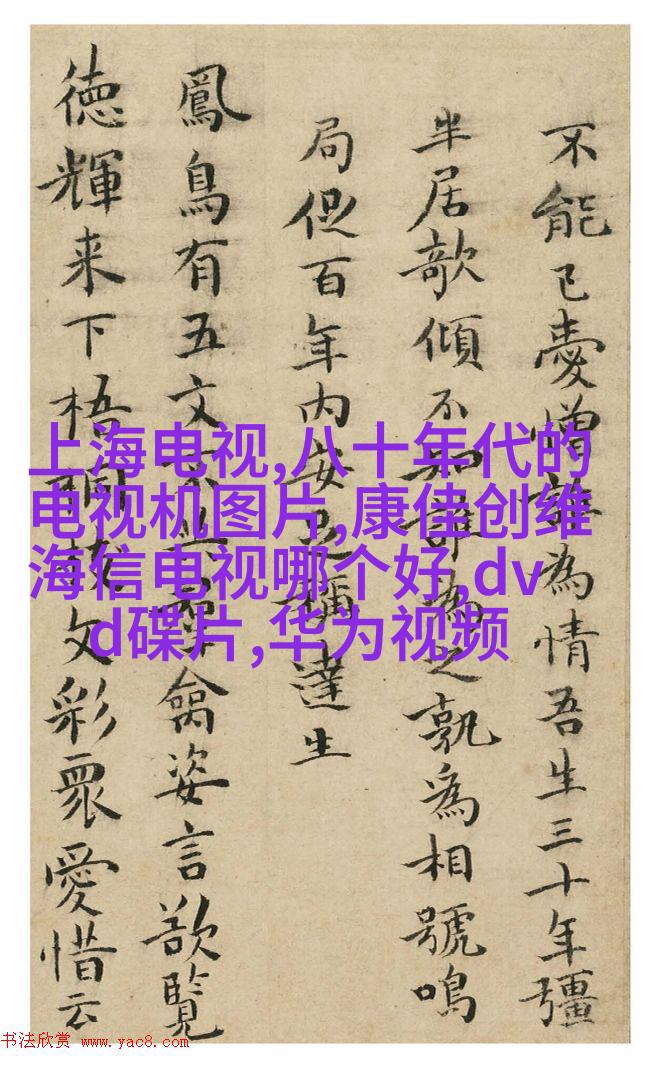 不能已憂憎為情吾生三十年彊
半居欹傾不知誰為之孰為相號鳴
局促百年内安足稱達生
鳳鳥有五文禽姿言欲覧
徳輝来下梧桐枝文彩眾愛惜云
上海电视,八十年代的
电视机图片,康佳创维
海信电视哪个好,dv
d碟片,华为视频
书法欣赏 www.yac8.com